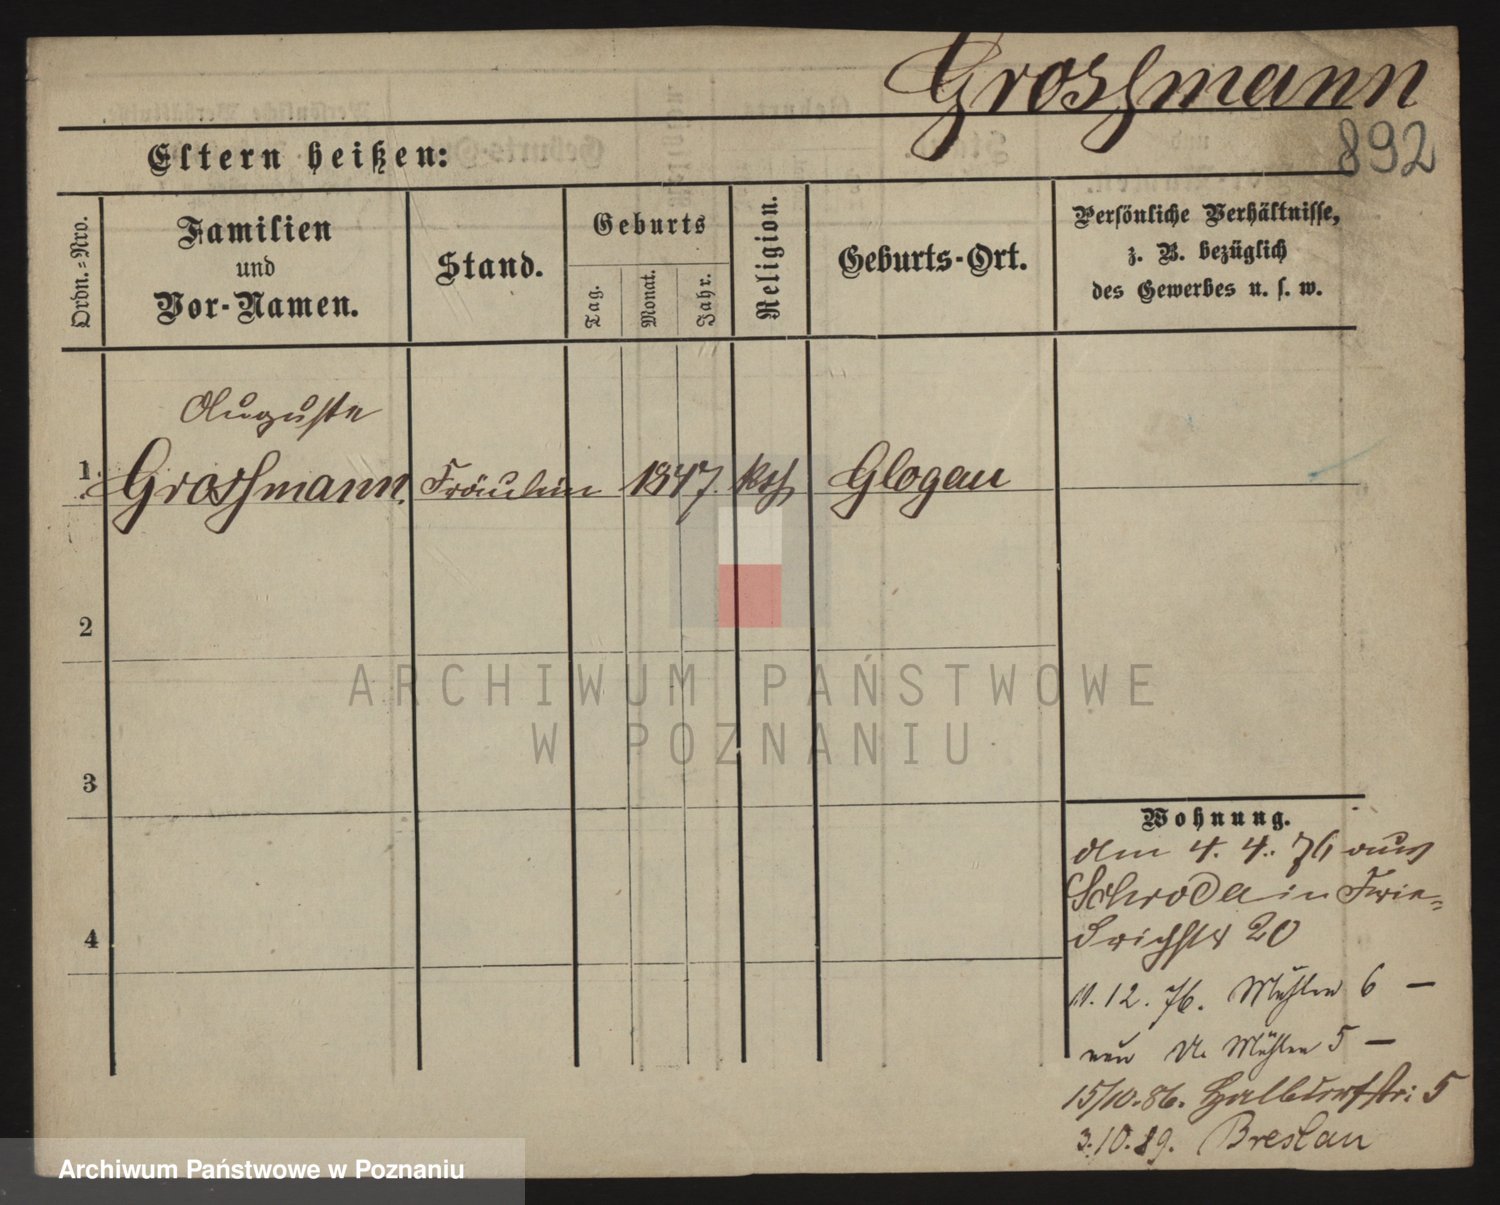 Grossmann
892
Eltern heißen:
Ordn.=Nro.
Familien
und
Vor-Namen.
Stand.
Geburts
Tag.
Monat.
Jahr.
Religion.
Geburts-Ort.
Persönliche Verhältnisse,
z. B. bezüglich
des Gewerbes u. s. w.
Auguste
1. Grossmann Fräulein 1847 kth Glogau
2
3
4
Wohnung.
den 4. 4. 76 aus
Schroda in Frie=
drichstr 20
11. 12. 76. Mühlen 6 —
neu N. Mühlen 5 —
15/10.86. Halbdorfstr: 5
3.10.89. Breslau
ARCHIWUM PAŃSTWOWE
W POZNANIU
Archiwum Państwowe w Poznaniu